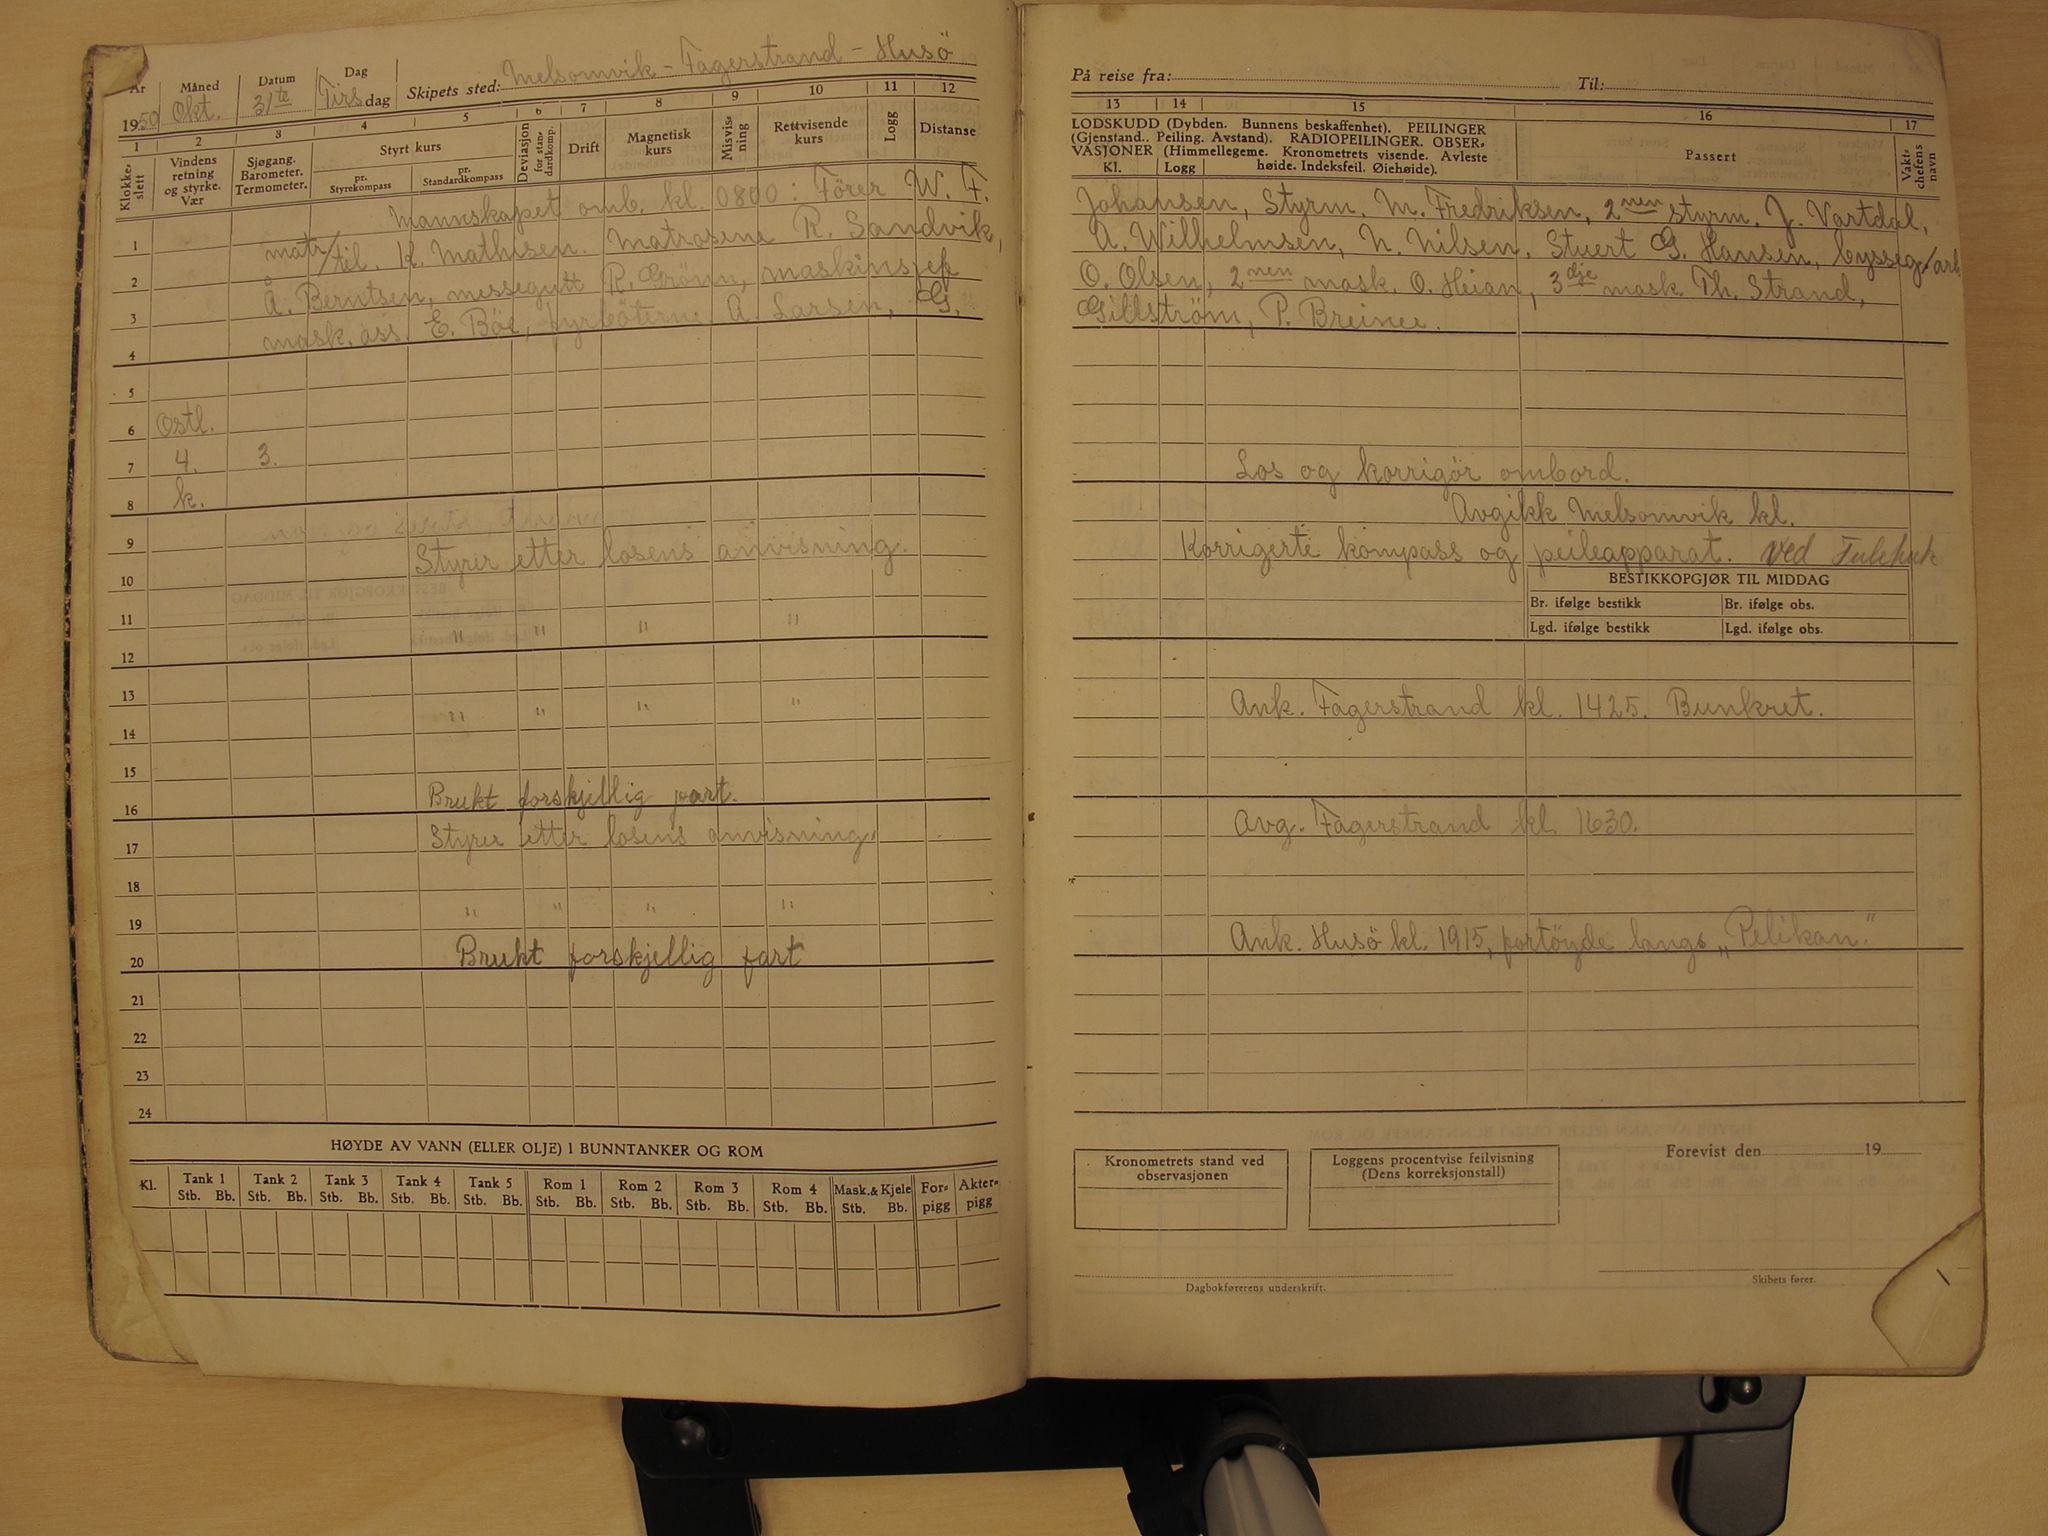 År Måned Datum Dag
1950 Okt. 31te Tirsdag Skipets sted: Melsomvik - Fagerstrand - Husö
1 2 3 4 5 6 7 8 9 10 11 12
Klokkeslett
Vindens retning og styrke. Vær
Sjøgang. Barometer. Termometer.
Styrt kurs
pr. Styrekompass
pr. Standardkompass
Deviasjon for standardkomp.
Drift
Magnetisk kurs
Misvisning
Rettvisende kurs
Logg
Distanse
Mannskapet omb. kl. 0800: Förer W. F.
1 matr/til. K. Mathisen. Matrosene R. Sandvik,
2 Å. Berntsen, messegutt R. Grönn, maskinsjef
3 mask. ass. E. Böe, fyrböterne A. Larsen, G.
4
5
6 Ostl.
7 4. 3.
8 k.
9
10 Styrer etter losens anvisning.
11 " " " "
12
13
14 " " " "
15
16 Brukt forskjellig fart.
17 Styrer etter losens anvisning.
18
19 " " " "
20 Brukt forskjellig fart
21
22
23
24
HØYDE AV VANN (ELLER OLJE) I BUNNTANKER OG ROM
Kl. Tank 1 Tank 2 Tank 3 Tank 4 Tank 5 Rom 1 Rom 2 Rom 3 Rom 4 Mask. & Kjele Forpigg Akterpigg
Stb. Bb. Stb. Bb. Stb. Bb. Stb. Bb. Stb. Bb. Stb. Bb. Stb. Bb. Stb. Bb. Stb. Bb. Stb. Bb.
På reise fra: Til:
13 14 15 16 17
LODSKUDD (Dybden. Bunnens beskaffenhet). PEILINGER
(Gjenstand. Peiling. Avstand). RADIOPEILINGER. OBSER-
VASJONER (Himmellegeme. Kronometrets visende. Avleste
Kl. Logg høide. Indeksfeil. Øiehøide).
Passert
Vaktchefens navn
Johansen, Styrm. M. Fredriksen, 2nen styrm. J. Vartdal,
A. Wilhelmsen, N. Nilsen. Stuert G. Hansen, bysseg/arb.
O. Olsen, 2nen mask. O. Heian, 3dje mask. Th. Strand,
Gillström, P. Breinee.
Los og korrigör ombord.
Avgikk Melsomvik kl.
Korrigerte kompass og peileapparat. ved Fulehuk
BESTIKKOPGJØR TIL MIDDAG
Br. ifølge bestikk Br. ifølge obs.
Lgd. ifølge bestikk Lgd. ifølge obs.
Ank. Fagerstrand kl. 1425. Bunkret.
Avg. Fagerstrand kl. 1630.
Ank. Husö kl. 1915, fortöyde langs „Pelikan."
Kronometrets stand ved
observasjonen
Loggens procentvise feilvisning
(Dens korreksjonstall)
Forevist den 19
Dagbokførerens underskrift.
Skibets fører.